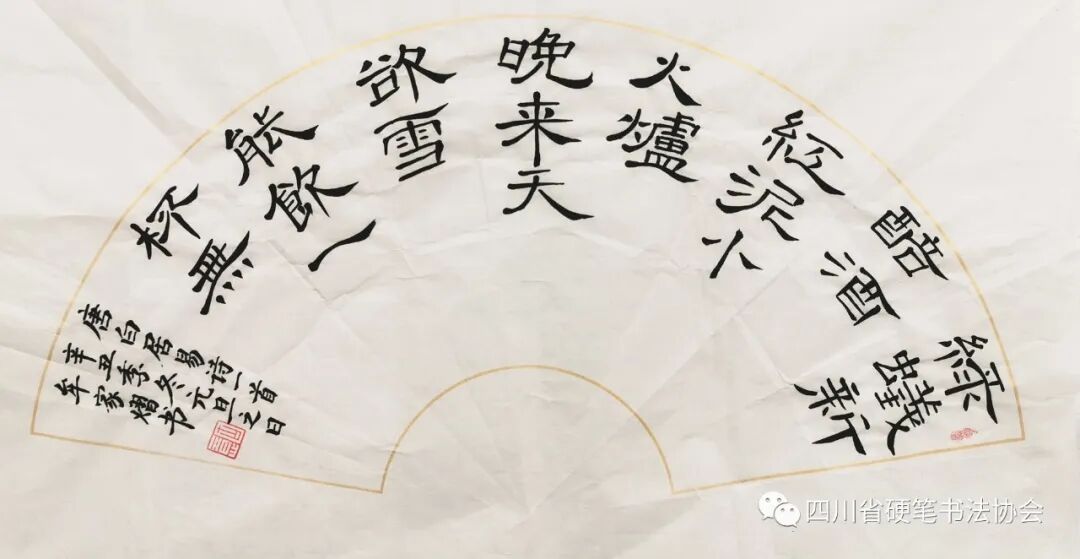 綠蟻新
醅酒
紅泥小
火爐
晚来天
欲雪
能飲一
杯無
唐白居易诗一首
辛丑季冬元旦之日
牟家熠书
四川省硬笔书法协会